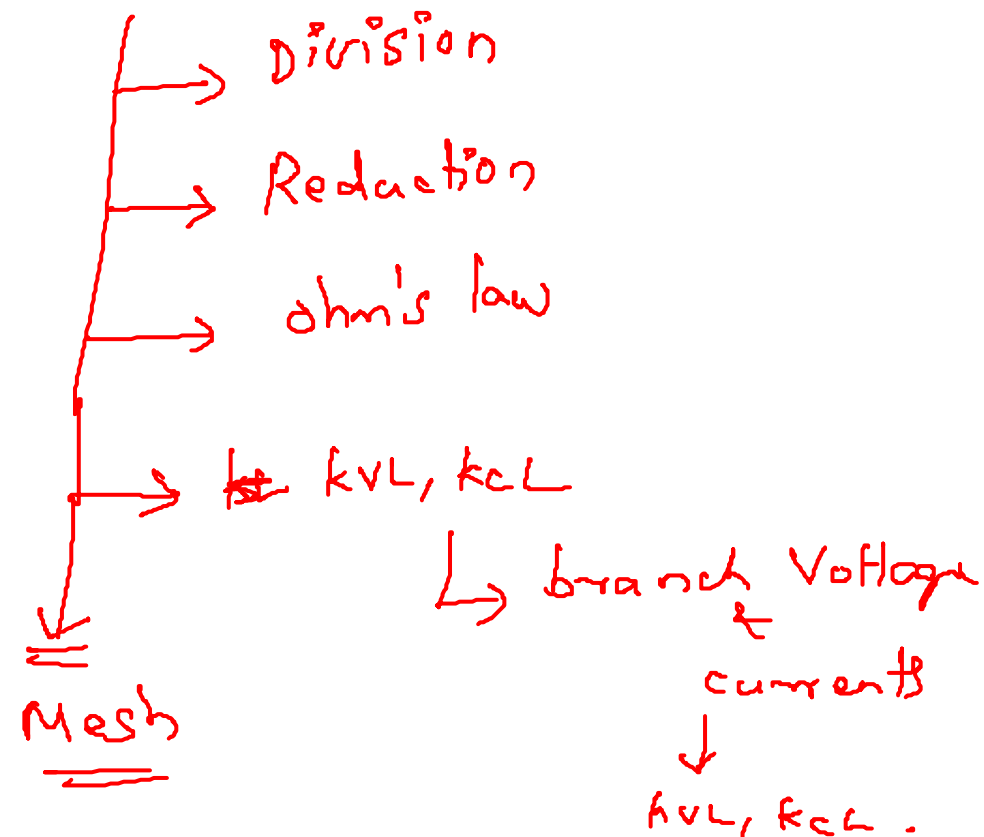 Division
Reduction
ohm's law
KVL, KCL
branch Voltage
&
currents
Mesh
KVL, KCL.